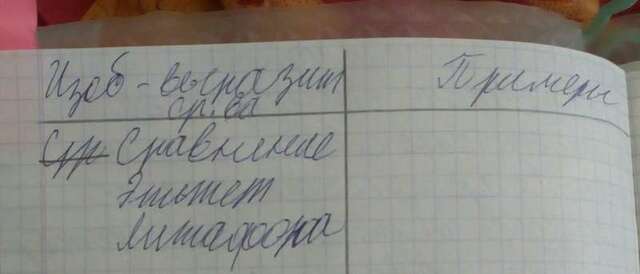 Изоб - выразит Примеры
ср.ва
Ср Сравнение
Эпитет
Митафора